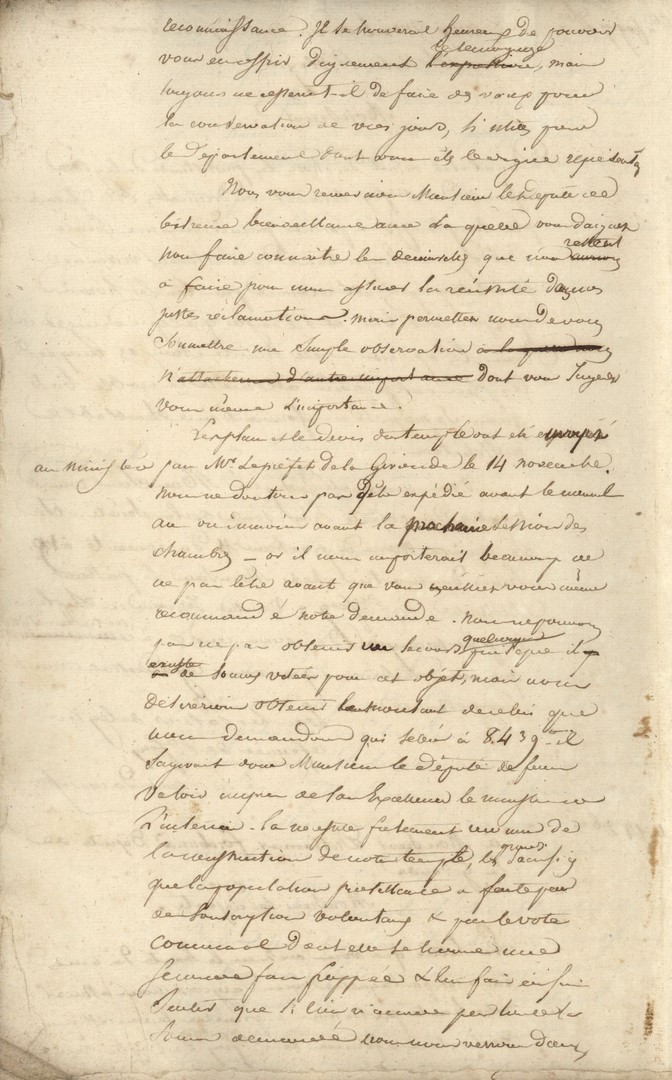 reconnaissance. Il se trouverait heureux de pouvoir
vous en offrir dignement le temoignage l'expression, mais
toujours ne cessent-il de faire des vœux pour
la conservation de vos jours, si utiles pour
le Département dont vous êtes le digne représentant
Nous vous remercions Monsieur le Député de
l'extreme bienveillance avec la quelle vous daignez
nous faire connaitre les demarches que nous restent
à faire pour nous assurer la réussite de nos
justes réclamations. mais permettez nous de vous
soumettre une simple observation à la
n'attacherons d'autre importance dont vous Jugerez
vous même l'importance.
Les plans et le devis du temple ont été envoyés
au ministère par Mr. Le préfet de la Gironde le 14 novembre.
nous ne doutons pas d'être expédié avant le nouvel
an ou au moins avant la prochaine Session des
chambres – or il nous importerait beaucoup de
ne pas l'être avant que vous veuillez vous même
recommandé notre demande. nous ne pouvons
pas ne pas obtenir un secours quelconque puisque il y
existe de sommes votées pour cet objet, mais nous
désirerions obtenir le montant de celui que
nous demandons qui s'élève à 8.439 – il
s'agirait donc Monsieur le député de faire
valoir auprès de Son Excellence le ministre de
l'intérieur. la necessité
la construction de notre temple, les grands sacrifices
que la population protestante a faite par
de souscription volontaires & par le vote
communal dont elle se trouve une
seconde fois frappée & lui faire enfin
sentir que si l'on n'accorde pas toute la
somme demandée nous nous verrions dans